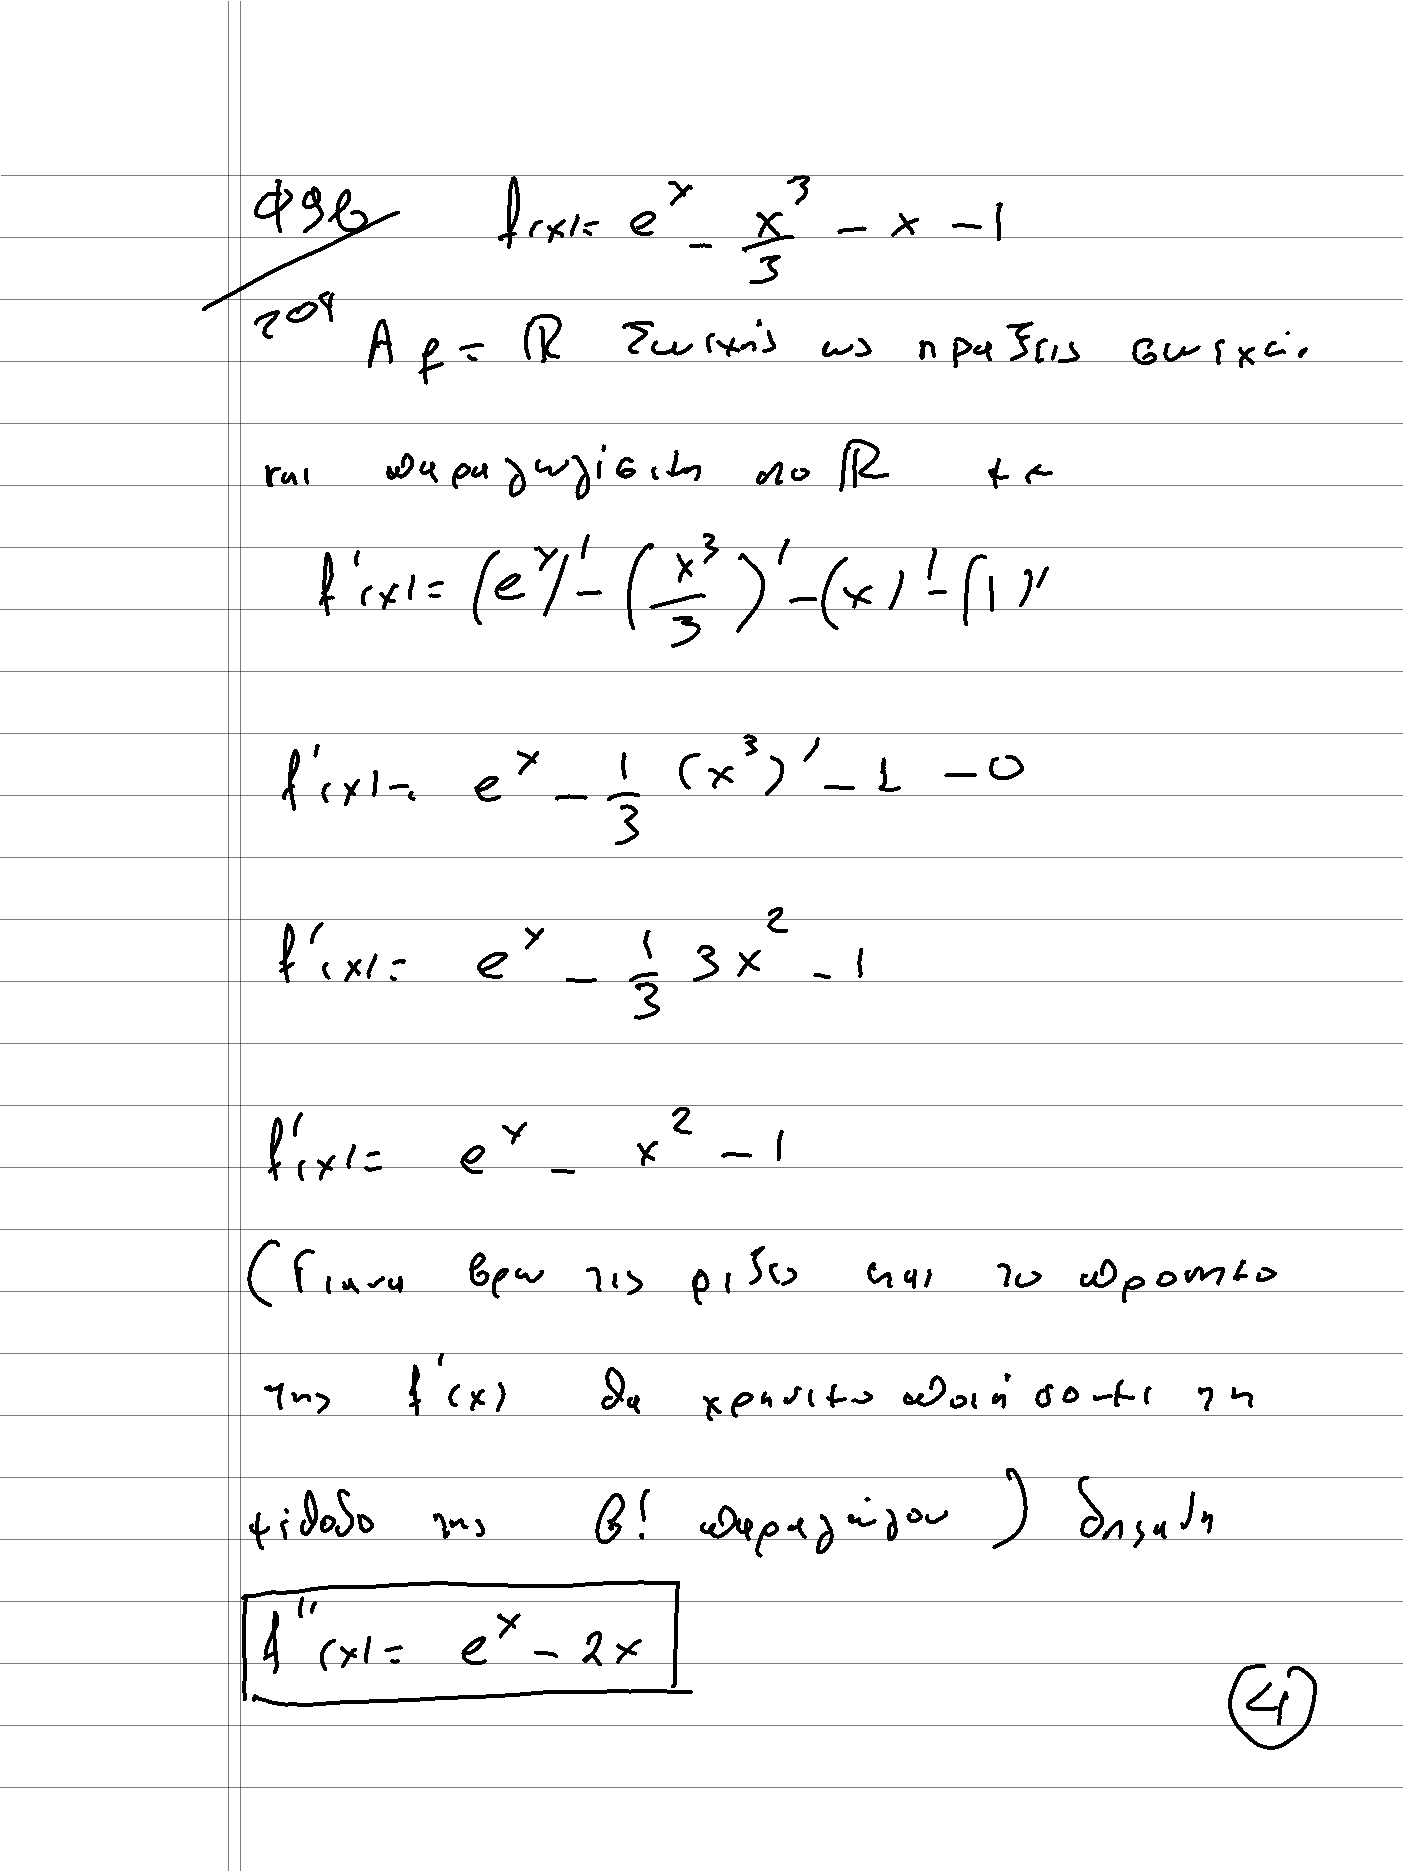 Φ9β f(x)= e^x - x^3/3 - x - 1
204
A f = ℝ Συνεχής ως πράξεις συνεχεί.
και παραγωγίσιμη στο ℝ με
f'(x)= (e^x)' - (x^3/3)' - (x)' - (1)'
f'(x)= e^x - 1/3 (x^3)' - 1 - 0
f'(x)= e^x - 1/3 3x^2 - 1
f'(x)= e^x - x^2 - 1
(Για να βρω τις ρίζες και το πρόσημο
της f'(x) θα χρησιμοποιήσουμε τη
μέθοδο της β! παραγώγου) δηλαδή
f''(x)= e^x - 2x
4